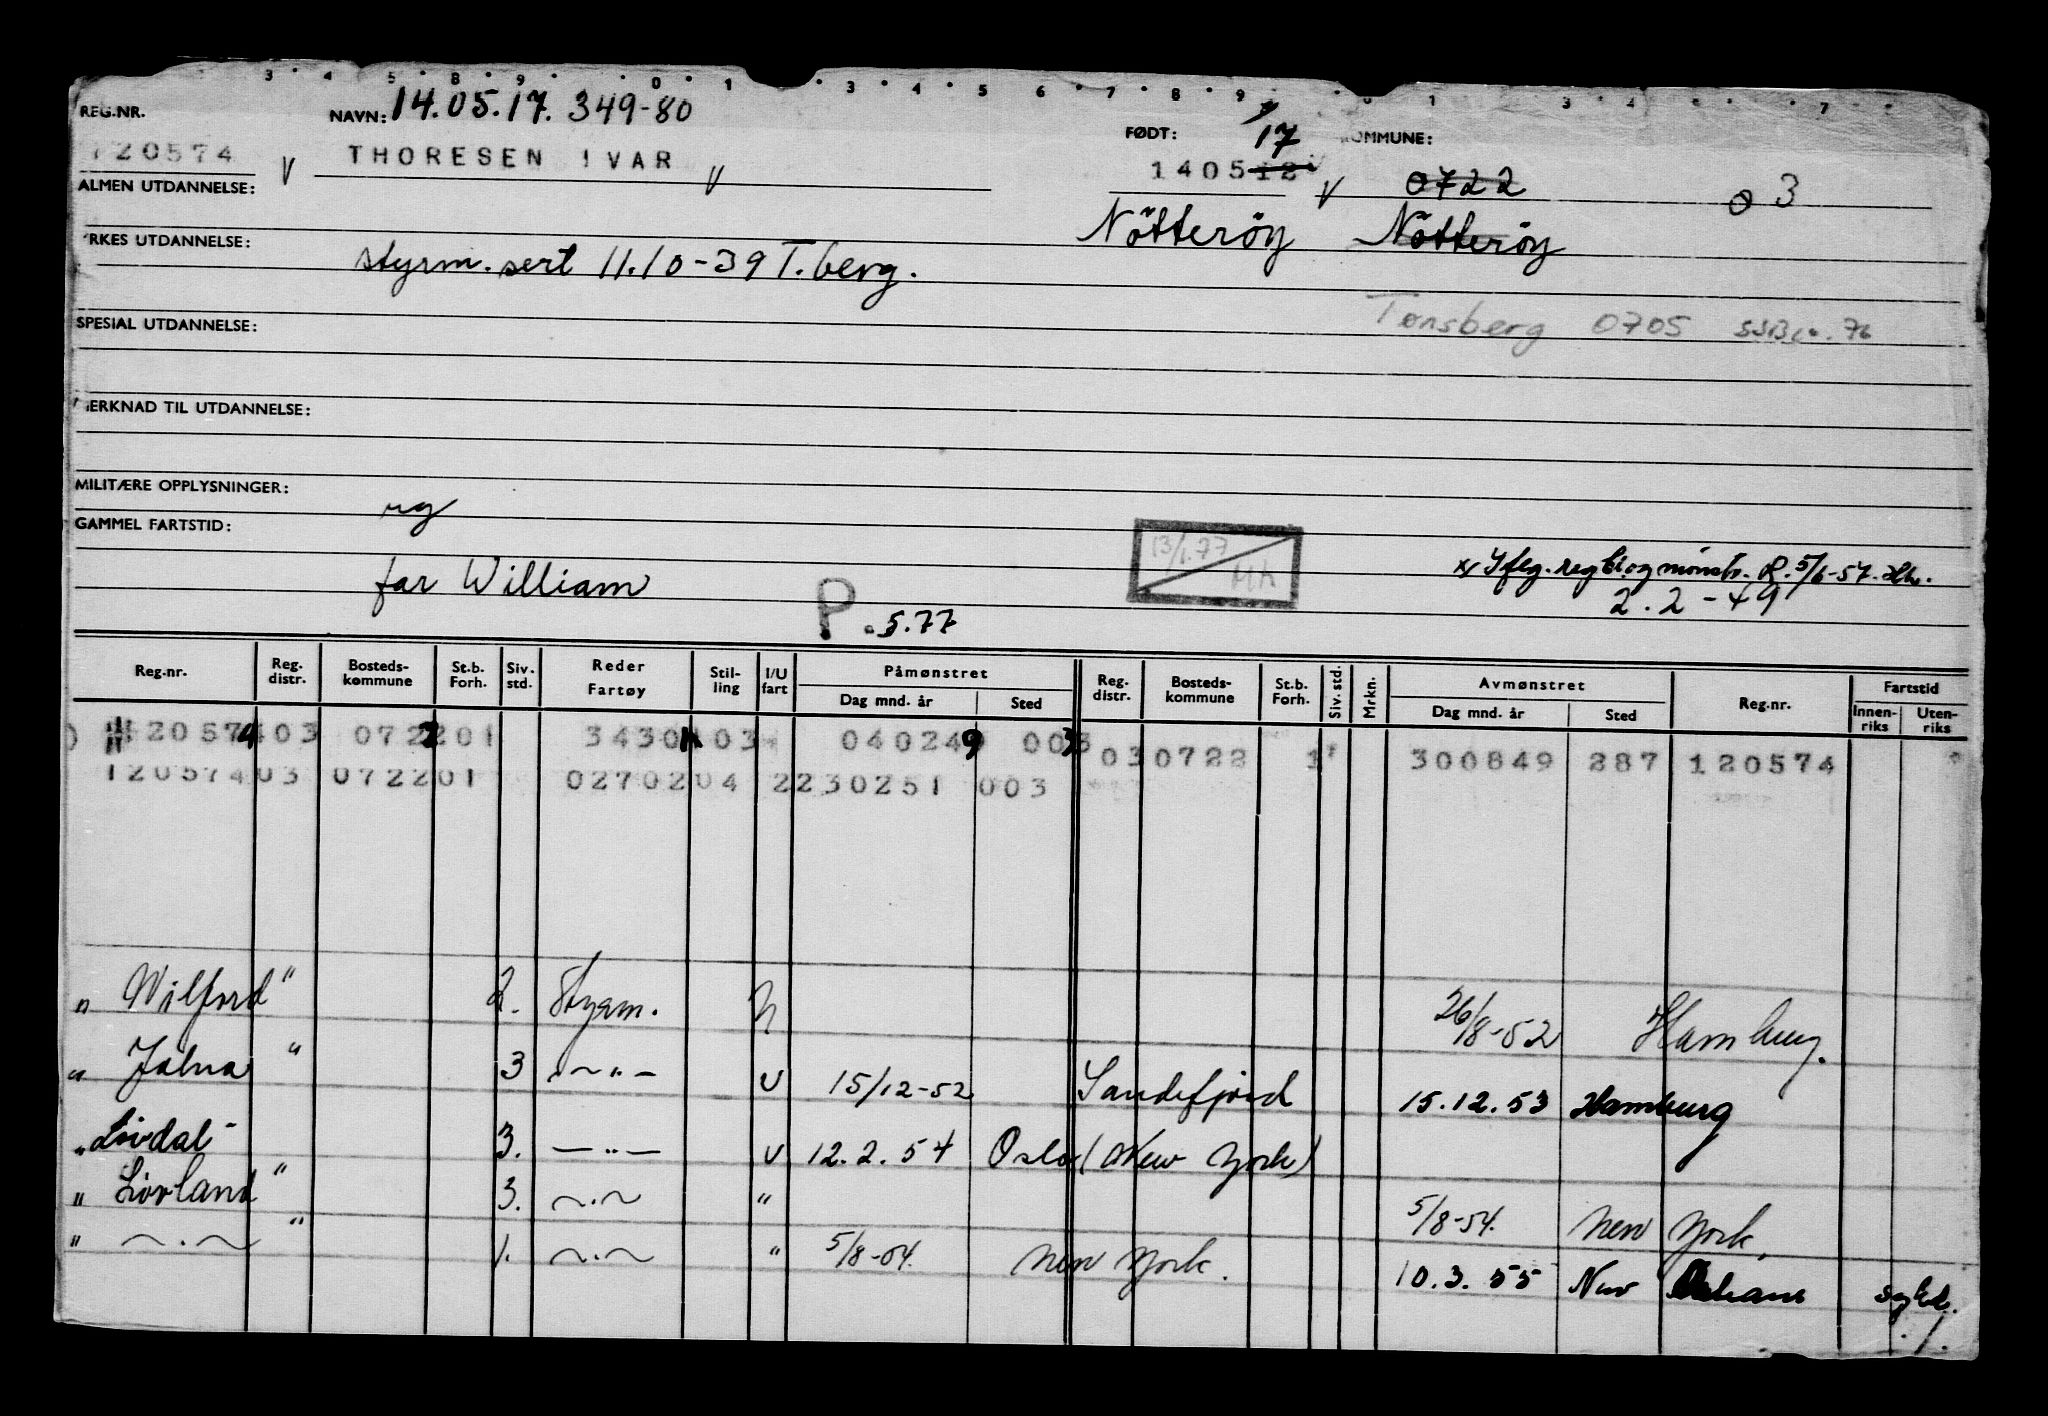 3 4 5 8 9 0 1 3 4 5 6 7 8 9 0 1 3 4 7
REG.NR. NAVN: 14.05.17. 349-80 FØDT: 17 KOMMUNE:
120574 V THORESEN IVAR V 140512 V 0722 03
ALMEN UTDANNELSE:
Nötteröy Nötteröy
YRKES UTDANNELSE: styrm. sert 11.10-39 T.berg.
Tønsberg 0705 76
SPESIAL UTDANNELSE:
MERKNAD TIL UTDANNELSE:
MILITÆRE OPPLYSNINGER: ug
GAMMEL FARTSTID:
13/1.77
far William
P. 5.77
x) Iflg. regbl og mønstr. R. 5/6-57. Hh.
2.2-49
Reg.nr. Reg. distr. Bosteds-kommune St.b. Forh. Siv. std. Reder Fartøy Stil-ling I/U fart Påmønstret Dag mnd. år Sted Reg. distr. Bosteds-kommune St.b. Forh. Siv. std. Mrkn. Avmønstret Dag mnd. år Sted Reg.nr. Fartstid Innen-riks Uten-riks
120574 03 0722 01 3430 03 040249 003 03 0722 1 300849 287 120574
120574 03 0722 01 02702 04 2 230251 003
" Wilford " 2. Styrm. U 26/8-52 Hamburg.
" Jalna " 3 —"— U 15/12-52 Sandefjord 15.12.53 Hamburg
" Lovdal " 3. —"— U 12.2.54 Oslo (New York)
" Lovland " 3. —"— " 5/8-54. New York.
" —"— " 1. —"— " 5/8-54. New York. 10.3.55 New Orleans sykd.